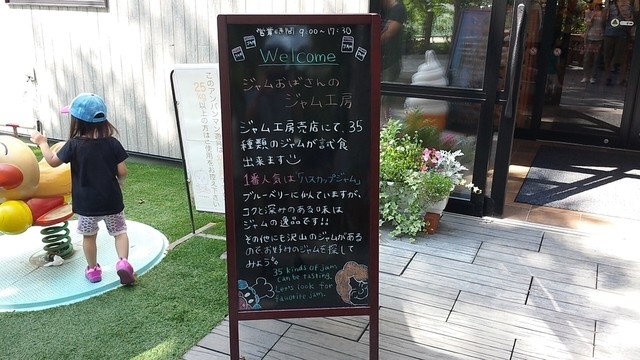 営業時間 9:00~17:30
JAM
JAM
Welcome
ジャムおばさんの
ジャム工房
ジャム工房売店にて、35
種類のジャムが試食
出来ます
1番人気は「ハスカップジャム」
ブルーベリーに似ていますが、
コクと深みのある味は
ジャムの逸品です!!
その他にも沢山のジャムがある
のでお好みのジャムを探して
みよう♪
35 kinds of jam
can be tasting.
Let's look for
favorite jam.
このアンパンマン遊具は
以上の方はご使用をお控え下さい